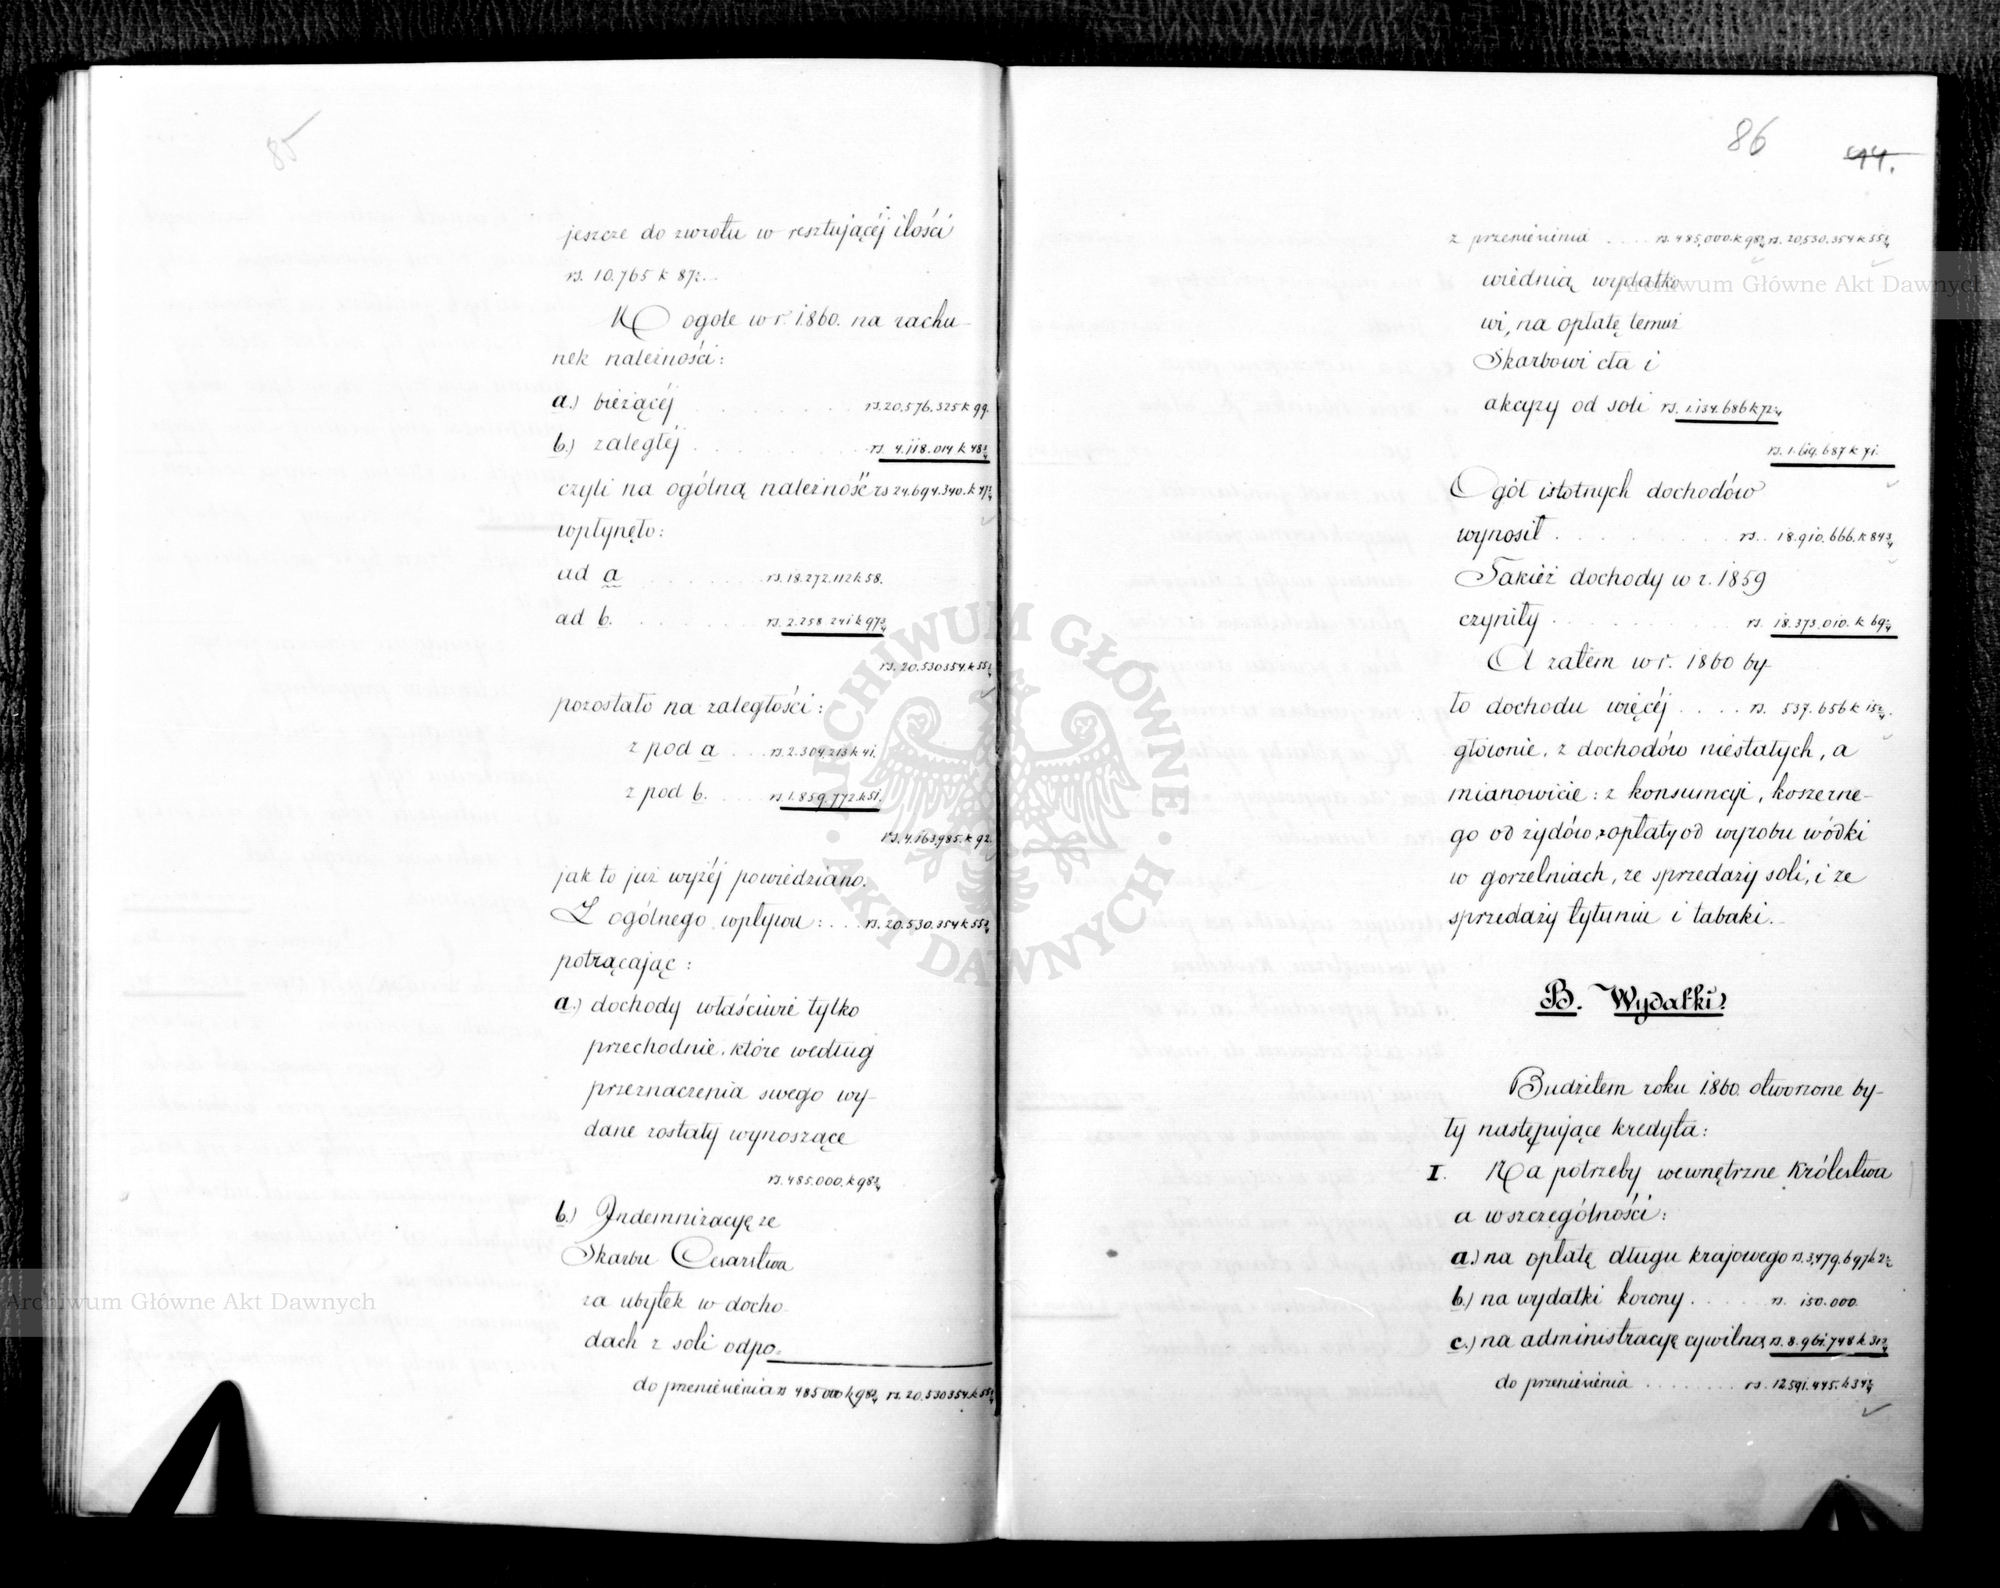 85
jeszcze do zwrotu w resztującéj ilości
rs. 10.765 k 87½.
W ogole w r. 1860. na rachu-
nek należności:
a.) bieżącéj rs. 20.576.325 k 99.
b.) zaległéj rs. 4.118.014 k 48¾
czyli na ogólną należność rs 24.694.340. k 47¾
wpłynęło:
ad a rs. 18.272.112 k 58.
ad b. rs. 2.258.241 k 97¾
rs. 20.530.354 k 55¾
pozostało na zaległości:
z pod a rs. 2.304.213 k 41.
z pod b. rs. 1.859.772 k 51.
rs. 4.163.985. k 92.
jak to już wyżéj powiedziano.
Z ogólnego wpływu: rs. 20.530.354 k 55¾
potrącając:
a.) dochody właściwie tylko
przechodnie, które według
przeznaczenia swego wy-
dane zostały wynoszące
rs. 485.000. k 98¾
b.) Indemnizacyę ze
Skarbu Cesarstwa
za ubytek w docho-
dach z soli odpo-
do przeniesienia rs 485.000 k 98¾ rs. 20.530.354 k 55¾
86
44.
z przeniesienia rs. 485,000. k 98¾ rs. 20.530.354 k 55¾
wiednią wydatko
wi, na opłatę temuż
Skarbowi cła i
akcyzy od soli rs. 1.134.686 k 72¼
rs. 1.619.687 k 71.
Ogół istotnych dochodów
wynosił rs. 18.910.666. k 84¾
Takież dochody w r. 1859
czyniły rs. 18.373.010. k 69¼
A zatem w r. 1860 by-
ło dochodu więcéj rs. 537.656 k 15½
głównie, z dochodów niestałych, a
mianowicie: z konsumcyi, koszerne-
go od żydów, opłaty od wyrobu wódki
w gorzelniach, ze sprzedaży soli, i ze
sprzedaży tytuniu i tabaki.
B. Wydatki
Budżetem roku 1860. otworzone by-
ły następujące kredyta:
I. Na potrzeby wewnętrzne Królestwa
a w szczególności:
a.) na opłatę długu krajowego rs. 3,479.697 k 2½
b.) na wydatki korony rs. 150.000.
c.) na administracyę cywilną rs. 8.961.748 k 31¾
do przeniesienia rs. 12.591.445. k 34¼
Archiwum Główne Akt Dawnych
Archiwum Główne Akt Dawnych
ARCHIWUM GŁÓWNE · AKT DAWNYCH ·